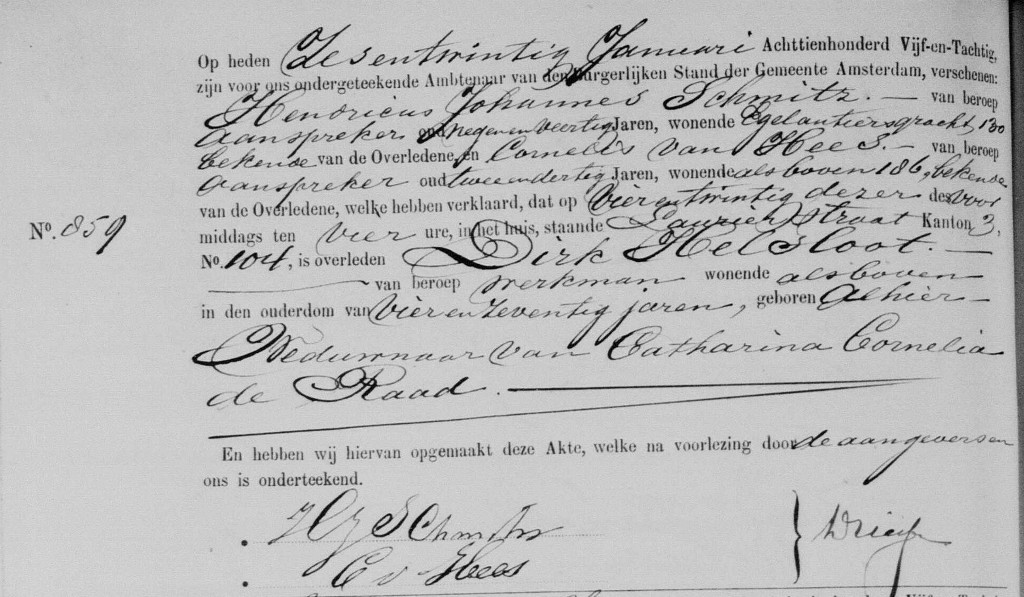 Op heden Zesentwintig Januari Achttienhonderd Vijf-en-Tachtig,
zijn voor ons ondergeteekende Ambtenaar van den Burgerlijken Stand der Gemeente Amsterdam, verschenen:
Hendricus Johannes Schmitz. — van beroep
Aanspreker oud negen en veertig Jaren, wonende Egelantiersgracht 130
bekende van de Overledene, en Cornelis van Hees. — van beroep
Aanspreker oud twee en dertig Jaren, wonende als boven 186, bekende
van de Overledene, welke hebben verklaard, dat op vier en twintig dezer des voor
No. 859
middags ten vier ure, in het huis, staande Laurierstraat Kanton 3,
No. 104, is overleden Dirk Helsloot. —
— van beroep werkman wonende als boven
in den ouderdom van vier en zeventig jaren, geboren Alhier —
Weduwnaar van Catharina Cornelia
de Raad. —
En hebben wij hiervan opgemaakt deze Akte, welke na voorlezing door de aangevers en
ons is onderteekend.
HJ Schmitz
C v Hees